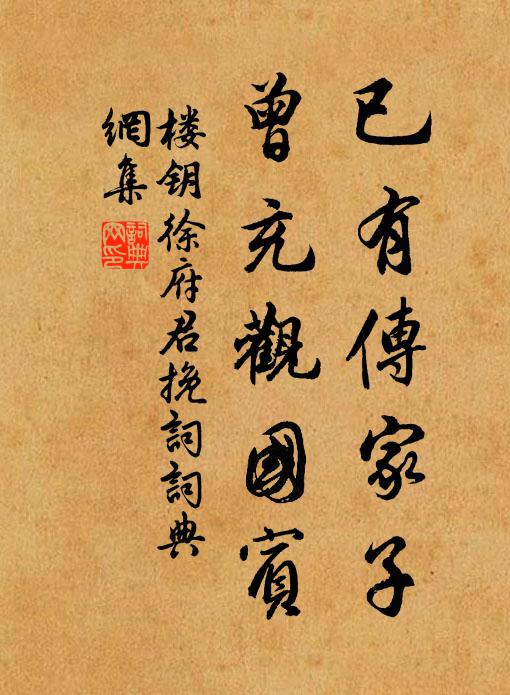 已有傳家子
曾充觀國賓
楼钥徐府君挽詞詞典
網集
詞典網印